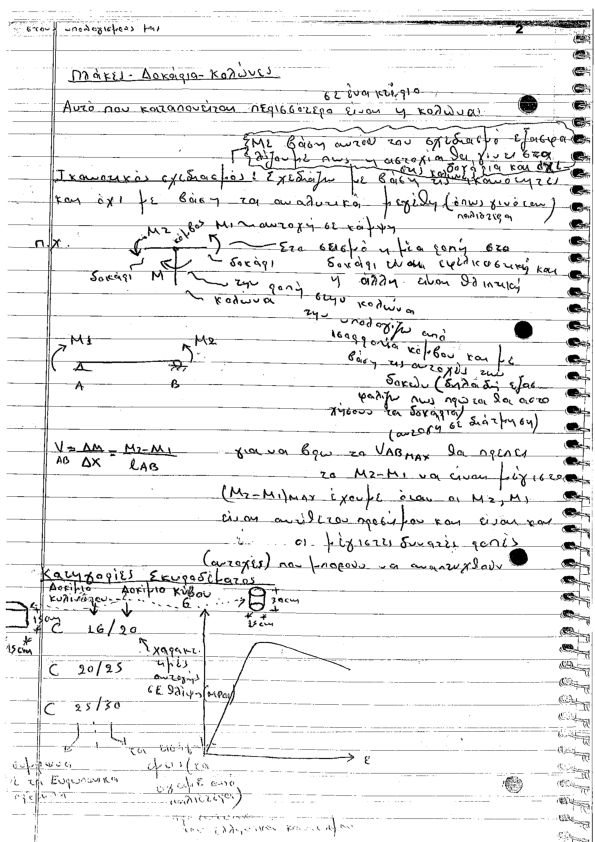 στον υπολογισμούς μας
2
Πλάκες - Δοκάρια - Κολώνες
σε ένα κτίριο
Αυτό που καταπονείται περισσότερο είναι η κολώνα
Με βάση αυτού του σχεδιασμό εξασφα
λίζουμε πως η αστοχία θα γίνει στα
δοκάρια και όχι
στις κολώνες
Ικανοτικός σχεδιασμός: Σχεδιάζω με βάση τις ικανότητες
και όχι με βάση τα αναλυτικά μεγέθη (όπως γινόταν
παλιότερα)
π.χ. M2 κόμβος M1 → αντοχή σε κάμψη
Στο σεισμό η μία ροπή στο
δοκάρι M δοκάρι δοκάρι είναι εφελκυστική και
την ροπή η άλλη είναι θλιπτική
κολώνα στην κολώνα
την υπολογίζω από
ισορροπία κόμβου και με
M1 M2
βάση τις αντοχές των
A B
δοκών (δηλαδή εξασ-
φαλίζω πως πρώτα θα αστο
χήσουν τα δοκάρια)
(αντοχή σε διάτμηση)
V AB = ΔM/ΔX = M2-M1/lAB για να βρω το VAB MAX θα πρέπει
το M2-M1 να είναι μέγιστο
(M2-M1)MAX έχουμε όταν οι M2, M1
είναι αντίθετου προσήμου και είναι και
οι μέγιστες δυνατές ροπές
(αντοχές) που μπορούν να αναπτυχθούν
Κατηγορίες Σκυροδέματος
Δοκίμιο κυλίνδρου Δοκίμιο κύβου
6
30cm
15cm
15cm
15cm
C 16/20
χαρακτ.
τιμές
αντοχής
σε θλίψη (MPa)
C 20/25
C 25/30
ε
Ευρωπαϊκα
παλιότερα)